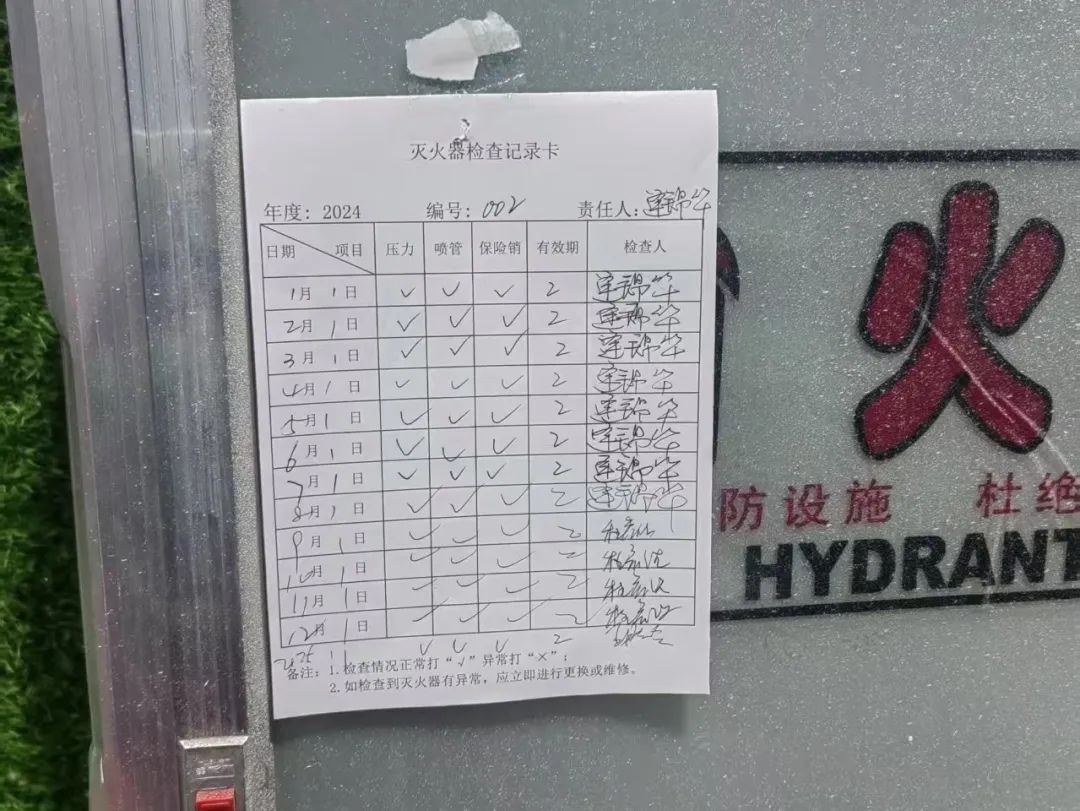 灭火器检查记录卡
年度: 2024 编号: 002 责任人: 连锦华
日期 项目 压力 喷管 保险销 有效期 检查人
1月1日 ✓ ✓ ✓ 2 连锦华
2月1日 ✓ ✓ ✓ 2 连锦华
3月1日 ✓ ✓ ✓ 2 连锦华
4月1日 ✓ ✓ ✓ 2 连锦华
5月1日 ✓ ✓ ✓ 2 连锦华
6月1日 ✓ ✓ ✓ 2 连锦华
7月1日 ✓ ✓ ✓ 2 连锦华
8月1日 ✓ ✓ ✓ 2 连锦华
9月1日 ✓ ✓ ✓ 2
10月1日 ✓ ✓ ✓ 2
11月1日 ✓ ✓ ✓ 2
12月1日 ✓ ✓ ✓ 2
2025 1 1 ✓ ✓ ✓ 2
备注: 1.检查情况正常打“√”异常打“×”;
2.如检查到灭火器有异常,应立即进行更换或维修。
火
防设施 杜绝
HYDRANT